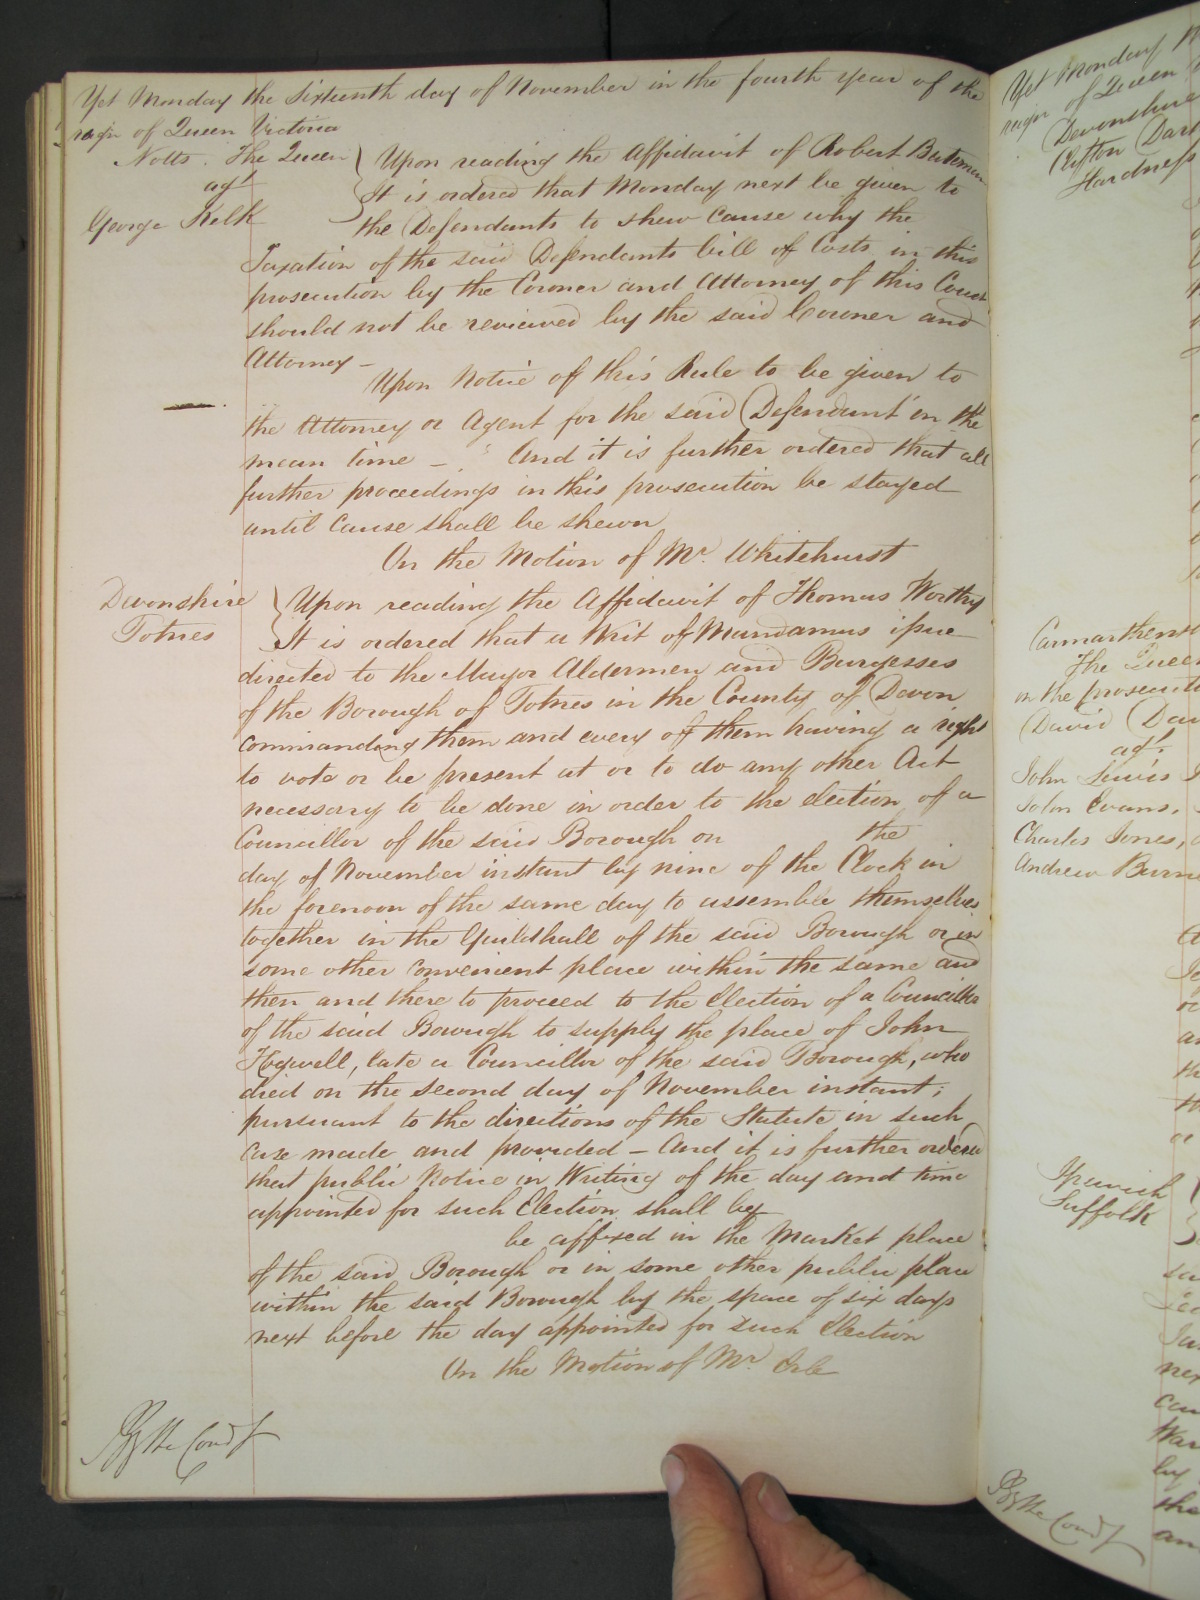 Yet Monday the Sixteenth day of November in the fourth year of the
reign of Queen Victoria
Notts. The Queen
agt
George Kelk
Upon reading the Affidavit of Robert Bateman
It is ordered that Monday next be given to
the Defendants to shew cause why the
Taxation of the said Defendants bill of Costs in this
prosecution by the Coroner and Attorney of this Court
should not be reviewed by the said Coroner and
Attorney –
Upon Notice of this Rule to be given to
the Attorney or Agent for the said Defendant in the
mean time – And it is further ordered that all
further proceedings in this prosecution be stayed
until Cause shall be shewn
On the Motion of Mr. Whitehurst
Devonshire
Totnes
Upon reading the Affidavit of Thomas Worthy
It is ordered that a Writ of Mandamus issue
directed to the Mayor Aldermen and Burgesses
of the Borough of Totnes in the County of Devon
commanding them and every of them having a right
to vote or be present at or to do any other Act
necessary to be done in order to the election of a
Councillor of the said Borough on the
day of November instant by nine of the Clock in
the forenoon of the same day to assemble themselves
together in the Guildhall of the said Borough or in
some other convenient place within the same and
then and there to proceed to the Election of a Councillor
of the said Borough to supply the place of John
late a Councillor of the said Borough, who
died on the second day of November instant;
pursuant to the directions of the Statute in such
case made and provided – And it is further ordered
that public Notice in Writing of the day and time
appointed for such Election shall by
be affixed in the Market place
of the said Borough or in some other public place
within the said Borough by the space of six days
next before the day appointed for such Election
On the Motion of Mr. Erle
By the Court
Yet Monday
reign of Queen
Devonshire
Clifton Dart
Hardness
Carmarthensh
The Queen
on the prosecuti
David Dav
agt.
John Lewis
John Evans,
Charles Jones,
Andrew Burne
Ipswich
Suffolk
By the Court